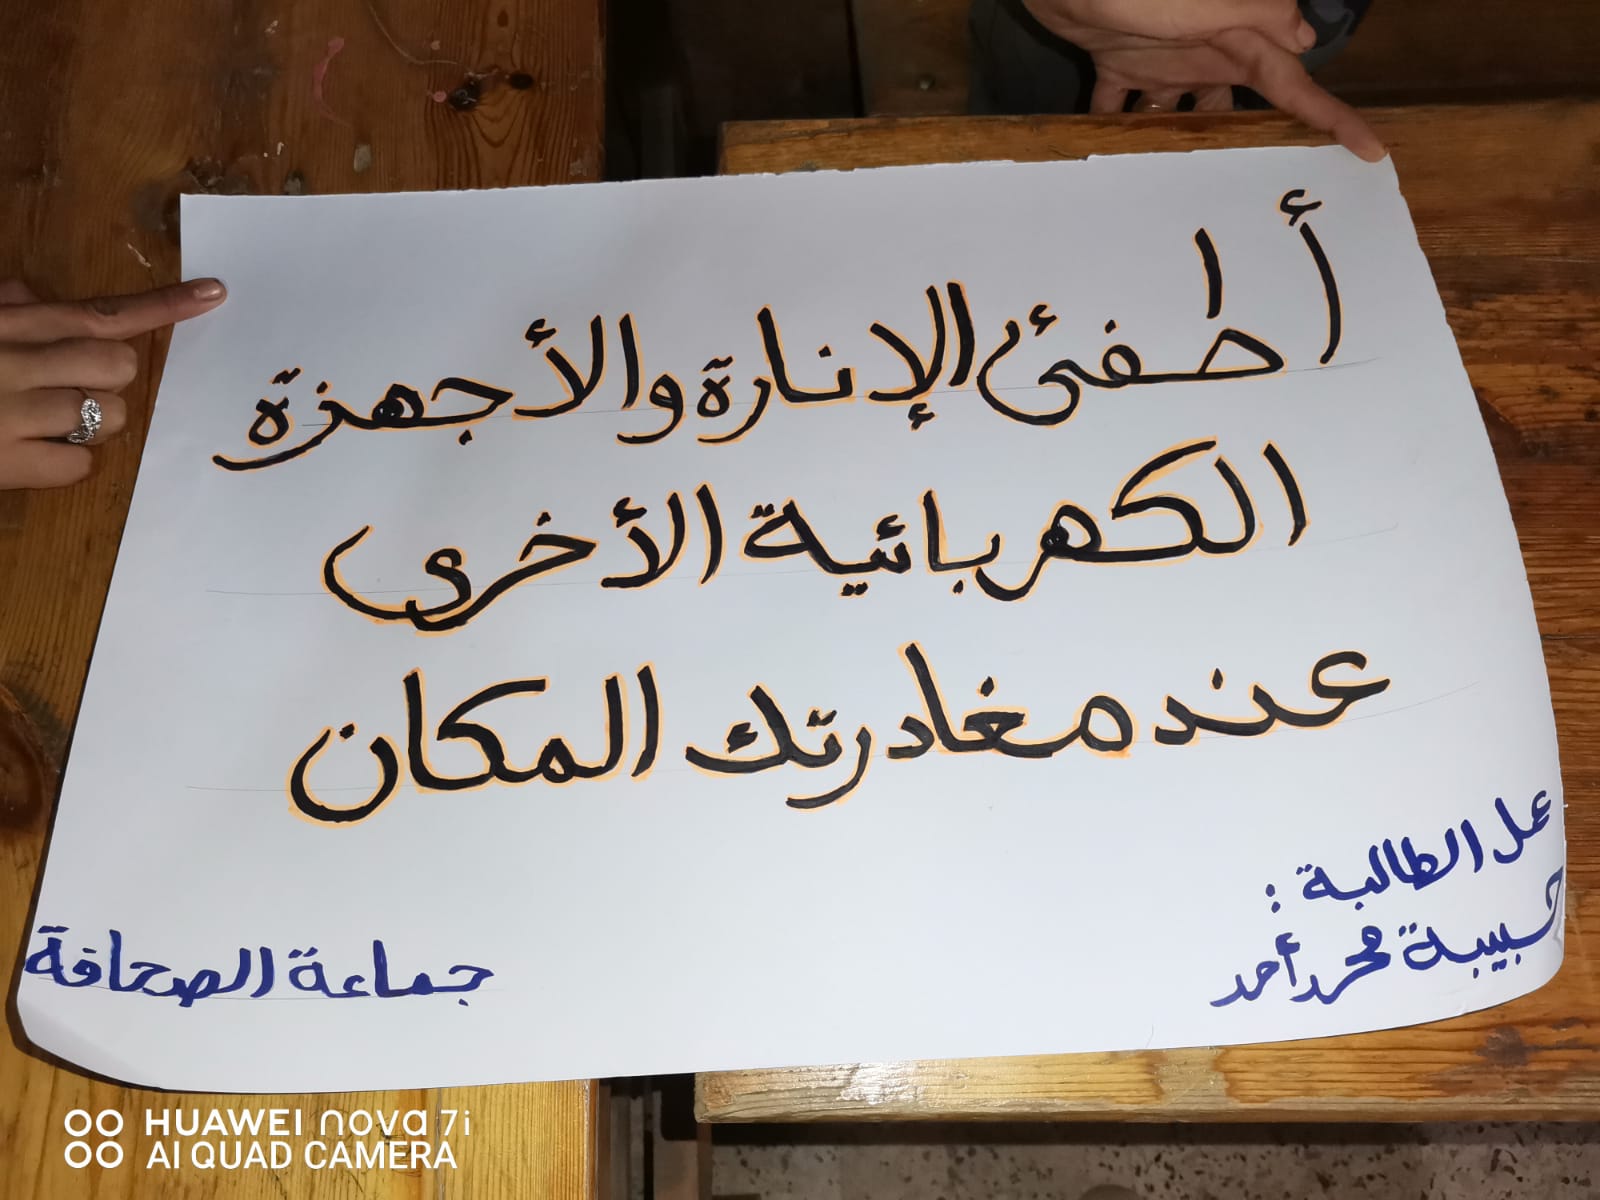 أطفئ الإنارة والأجهزة
الكهربائية الأخرى
عند مغادرتك المكان
عمل الطالبة :
حبيبة محمد أحمد
جماعة الصحافة
HUAWEI nova 7i
AI QUAD CAMERA